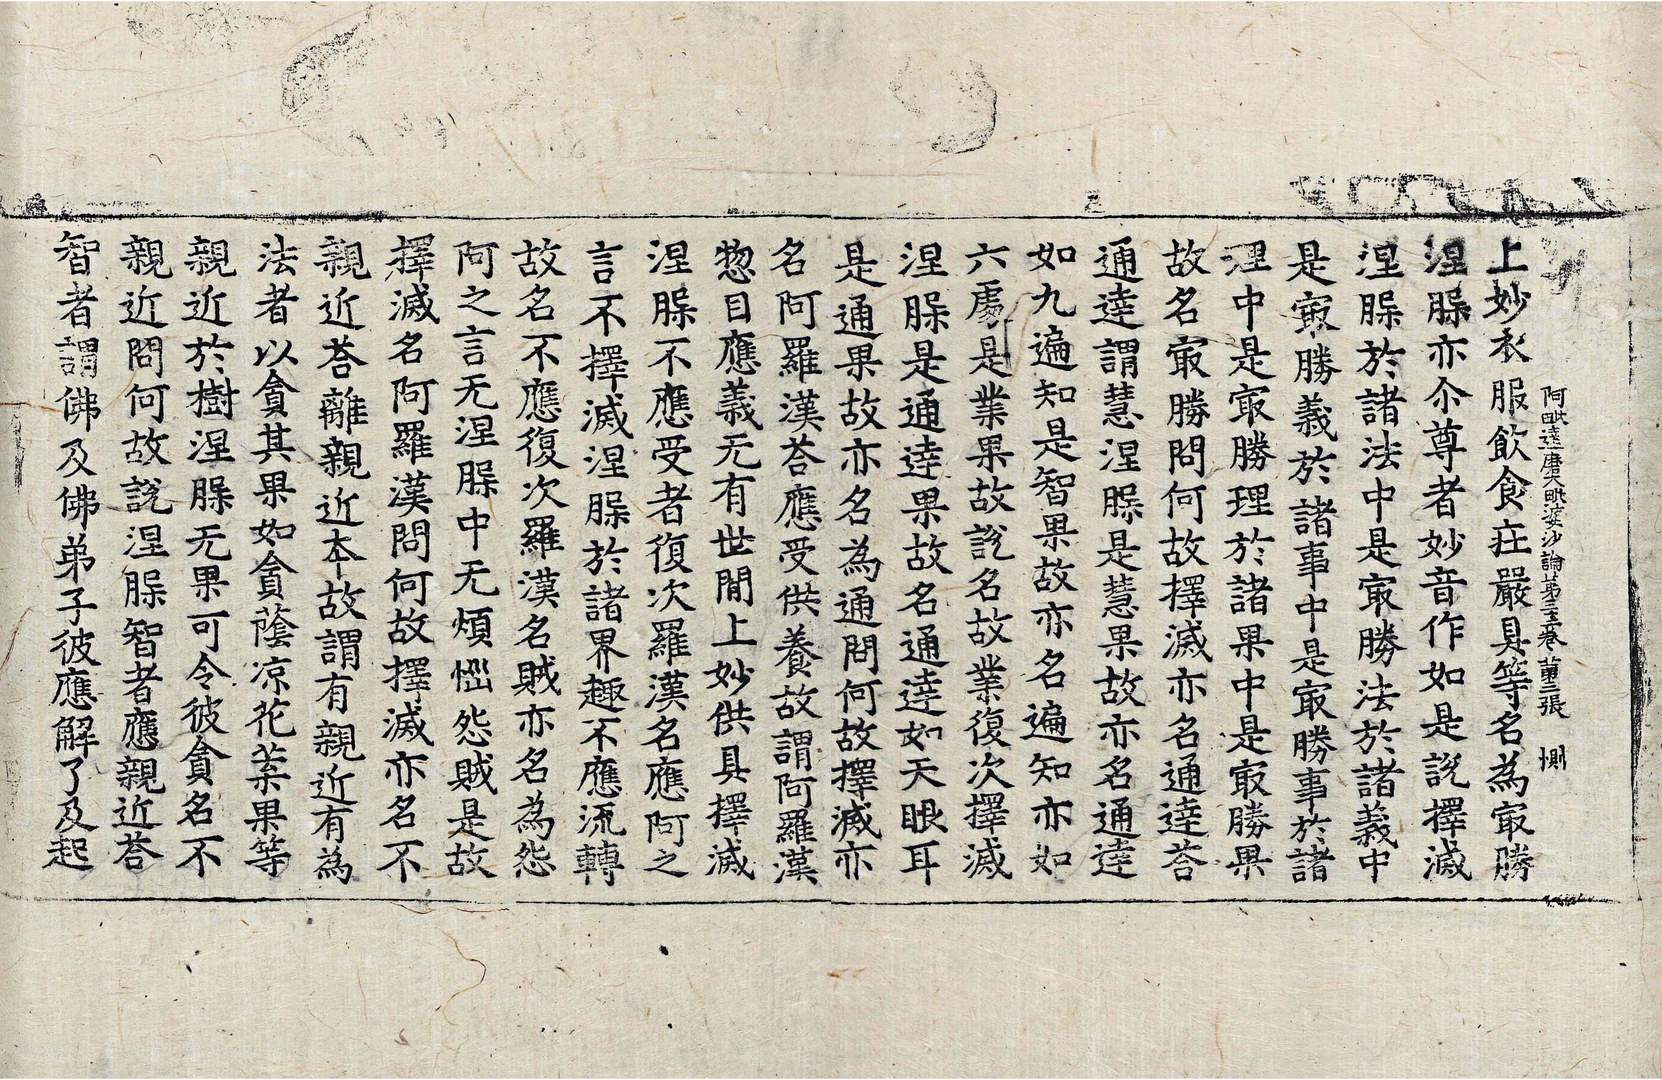 阿毗達磨大毗婆沙論第三十二卷 第二張 惻
上妙衣服飲食莊嚴具等名為㝡勝
涅槃亦尒尊者妙音作如是說擇滅
涅槃於諸法中是㝡勝法於諸義中
是㝡勝義於諸事中是㝡勝事於諸
理中是㝡勝理於諸果中是㝡勝果
故名㝡勝問何故擇滅亦名通達荅
通達謂慧涅槃是慧果故亦名通達
如九遍知是智果故亦名遍知亦如
六處是業果故說名故業復次擇滅
涅槃是通達果故名通達如天眼耳
是通果故亦名為通問何故擇滅亦
名阿羅漢荅應受供養故謂阿羅漢
惣目應義无有世間上妙供具擇滅
涅槃不應受者復次羅漢名應阿之
言不擇滅涅槃於諸界趣不應流轉
故名不應復次羅漢名賊亦名為怨
阿之言无涅槃中无煩惱怨賊是故
擇滅名阿羅漢問何故擇滅亦名不
親近荅離親近本故謂有親近有為
法者以貪其果如貪蔭凉花菓果等
親近於樹涅槃无果可令彼貪名不
親近問何故說涅槃智者應親近荅
智者謂佛及佛弟子彼應解了及起